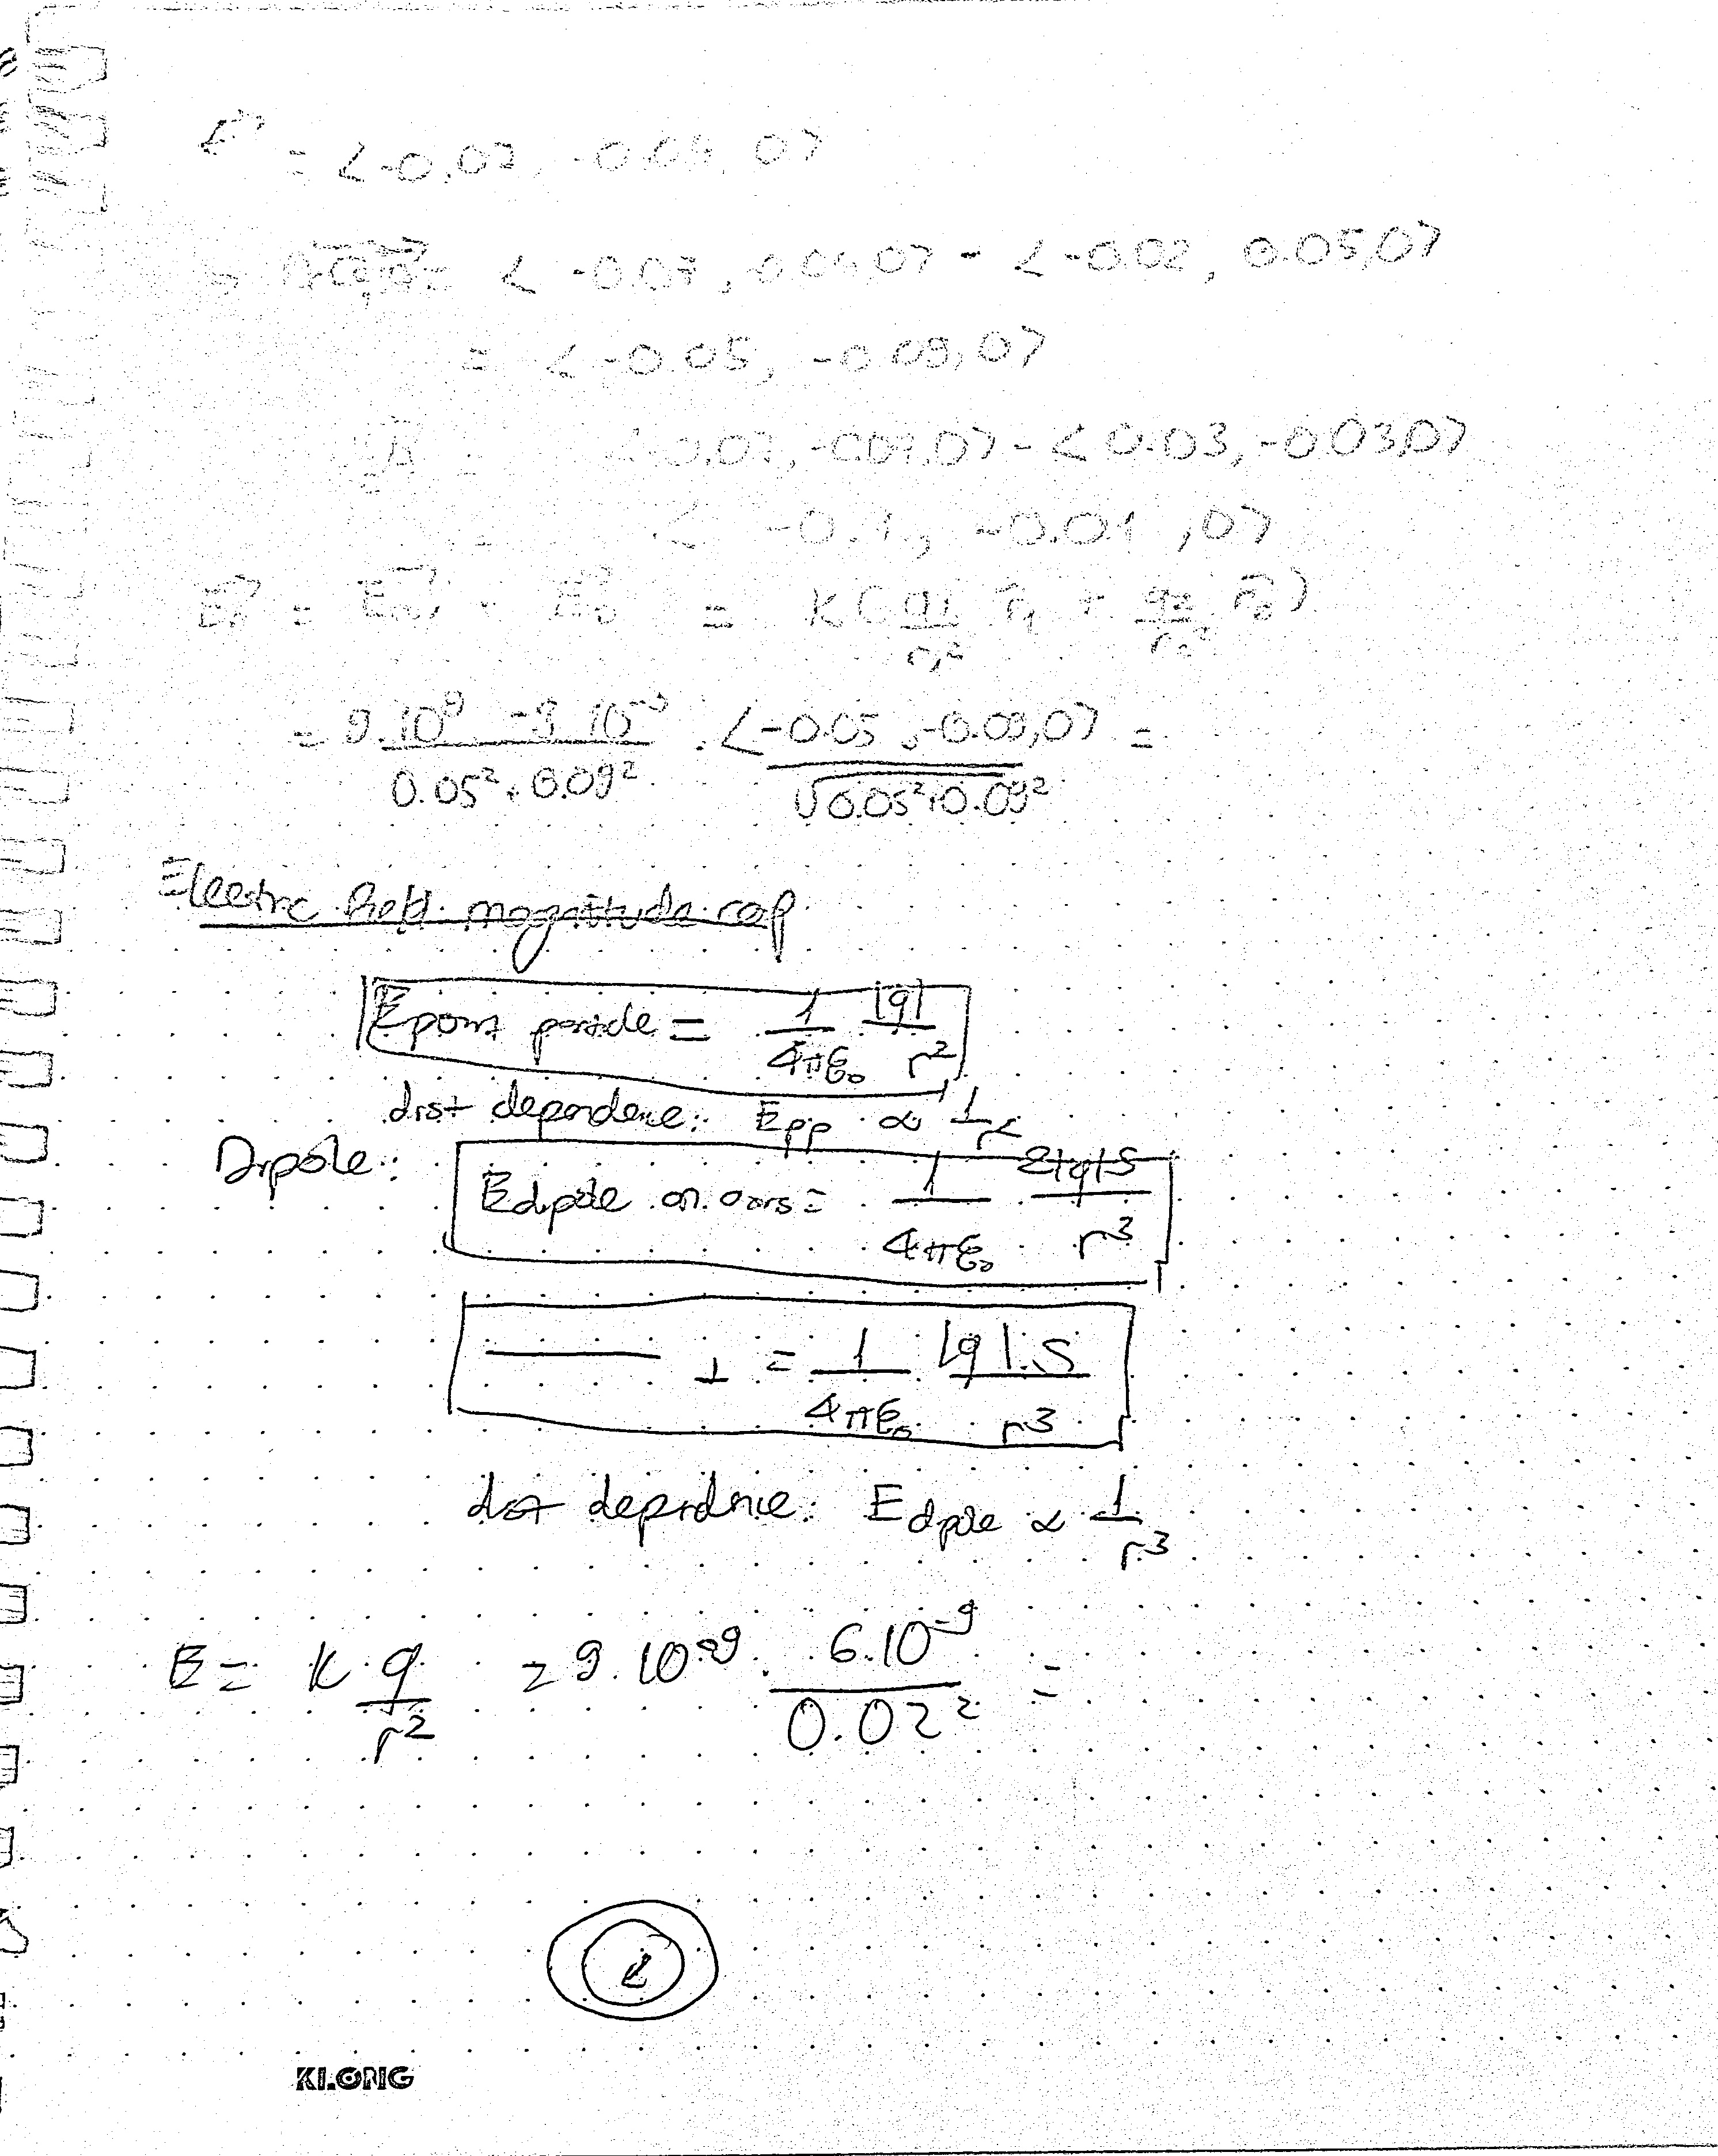 = <-0.07, -0.04, 0>
= <-0.07, -0.04, 0> - <-0.02, 0.05, 0>
= <-0.05, -0.09, 0>
<-0.07, -0.04, 0> - <0.03, -0.03, 0>
= < -0.1, -0.01, 0>
= = K( q1/r1² r̂1 + q2/r2² r̂2 )
= 9.10⁹ · -9.10⁻⁹ / 0.05² + 0.09² · <-0.05, -0.09, 0> / √0.05² + 0.09² =
Electric field magnitude
E point particle = 1/4πε₀ |q|/r²
dist dependence: Epp ∝ 1/r²
Dipole: Edipole on axis = 1/4πε₀ 2|q|s/r³
⊥ = 1/4πε₀ |q|.s/r³
dist dependence: Edipole ∝ 1/r³
E = K q/r² = 9.10⁹ . 6.10⁻⁹/0.02² =
KLONG